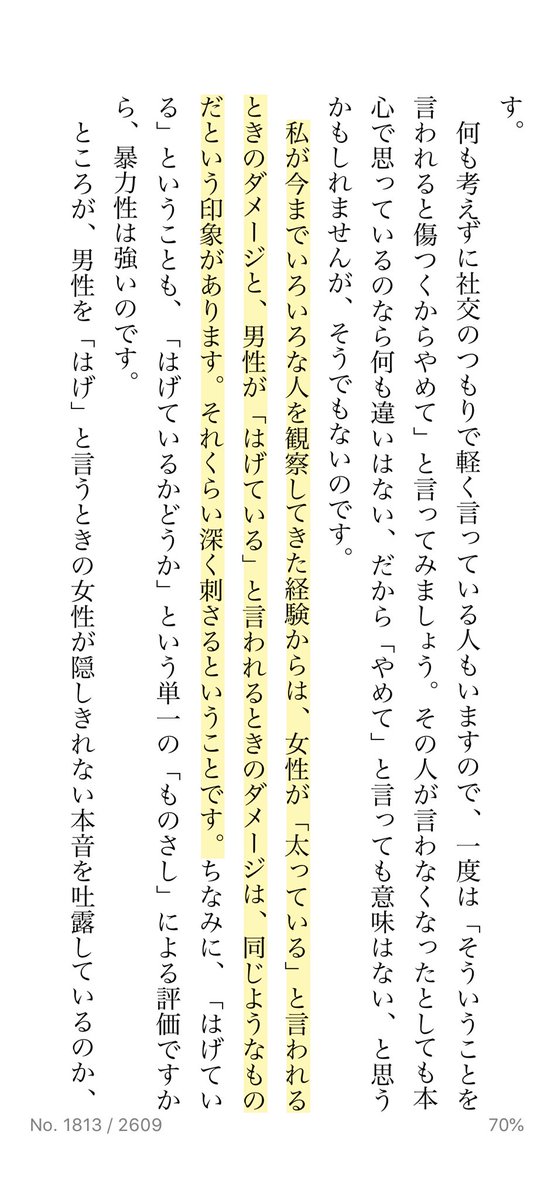 す。
何も考えずに社交のつもりで軽く言っている人もいますので、一度は「そういうことを
言われると傷つくからやめて」と言ってみましょう。その人が言わなくなったとしても本
心で思っているのなら何も違いはない、だから「やめて」と言っても意味はない、と思う
かもしれませんが、そうでもないのです。
私が今までいろいろな人を観察してきた経験からは、女性が「太っている」と言われる
ときのダメージと、男性が「はげている」と言われるときのダメージは、同じようなもの
だという印象があります。それくらい深く刺さるということです。ちなみに、「はげてい
る」ということも、「はげているかどうか」という単一の「ものさし」による評価ですか
ら、暴力性は強いのです。
ところが、男性を「はげ」と言うときの女性が隠しきれない本音を吐露しているのか、
No. 1813 / 2609
70%